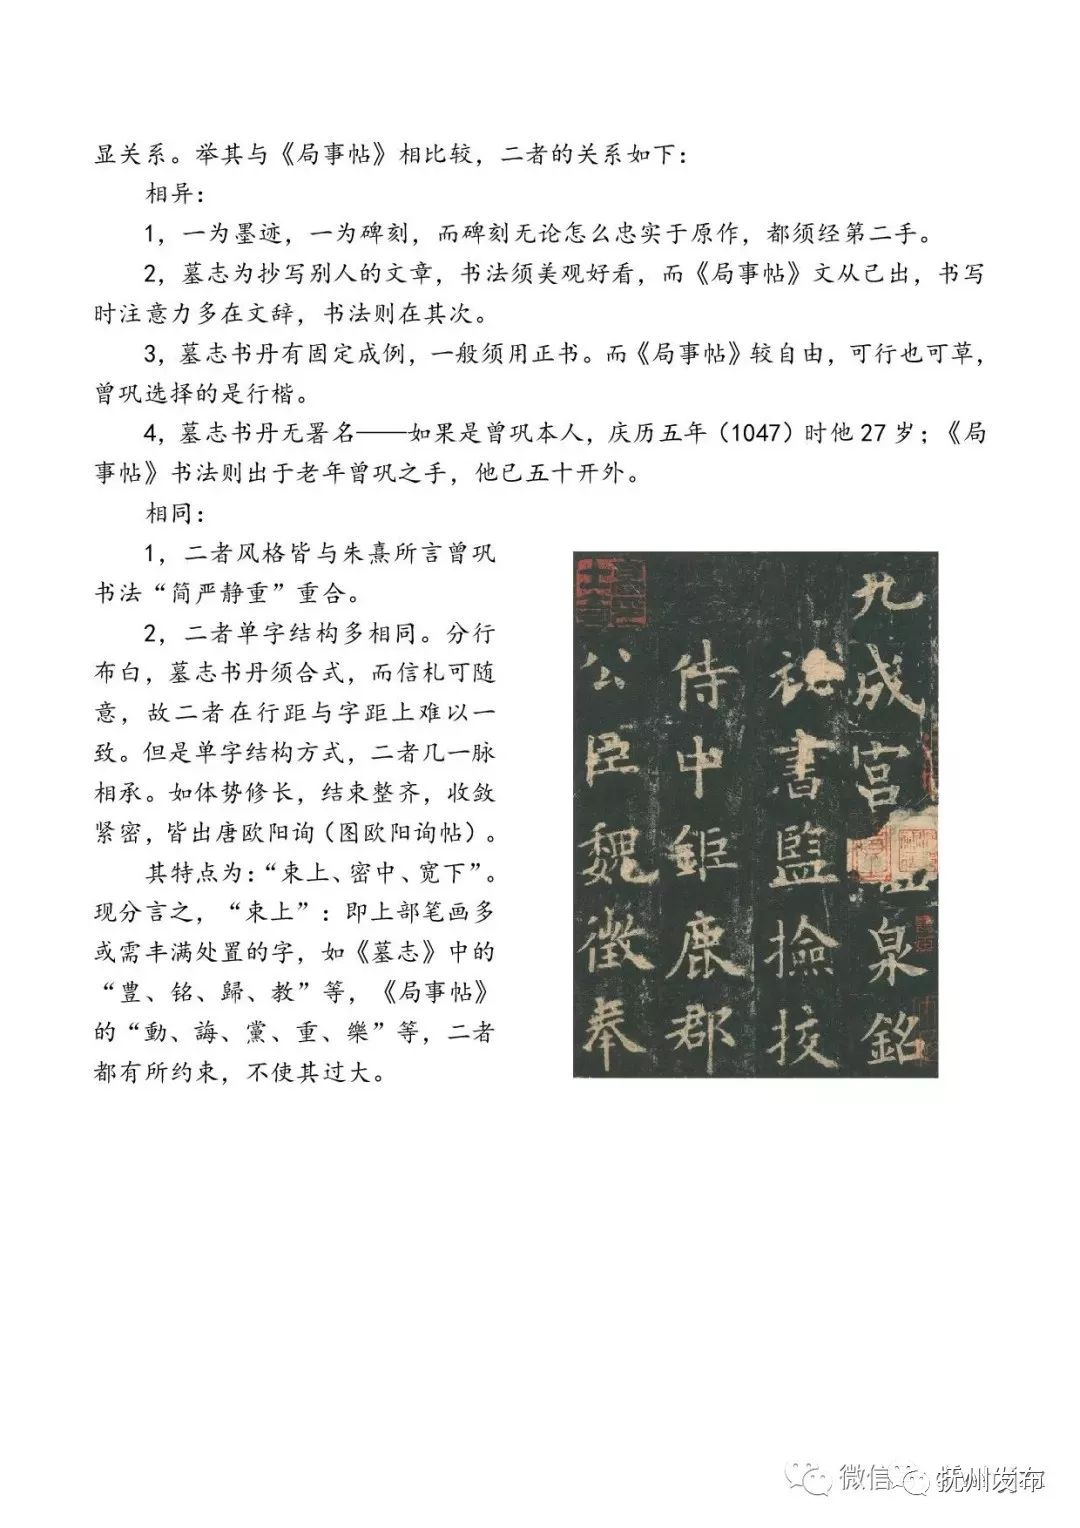 显关系。举其与《局事帖》相比较，二者的关系如下：
相异：
1，一为墨迹，一为碑刻，而碑刻无论怎么忠实于原作，都须经第二手。
2，墓志为抄写别人的文章，书法须美观好看，而《局事帖》文从己出，书写
时注意力多在文辞，书法则在其次。
3，墓志书丹有固定成例，一般须用正书。而《局事帖》较自由，可行也可草，
曾巩选择的是行楷。
4，墓志书丹无署名——如果是曾巩本人，庆历五年（1047）时他 27 岁；《局
事帖》书法则出于老年曾巩之手，他已五十开外。
相同：
1，二者风格皆与朱熹所言曾巩
书法“简严静重”重合。
2，二者单字结构多相同。分行
布白，墓志书丹须合式，而信札可随
意，故二者在行距与字距上难以一
致。但是单字结构方式，二者几一脉
相承。如体势修长，结束整齐，收敛
紧密，皆出唐欧阳询（图欧阳询帖）。
其特点为：“束上、密中、宽下”。
现分言之，“束上”：即上部笔画多
或需丰满处置的字，如《墓志》中的
“豊、铭、歸、教”等，《局事帖》
的“動、誨、黨、重、樂”等，二者
都有所约束，不使其过大。
九成宮泉銘
祕書監撿挍
侍中鉅鹿郡
公臣魏徵奉
微信
抚州发布